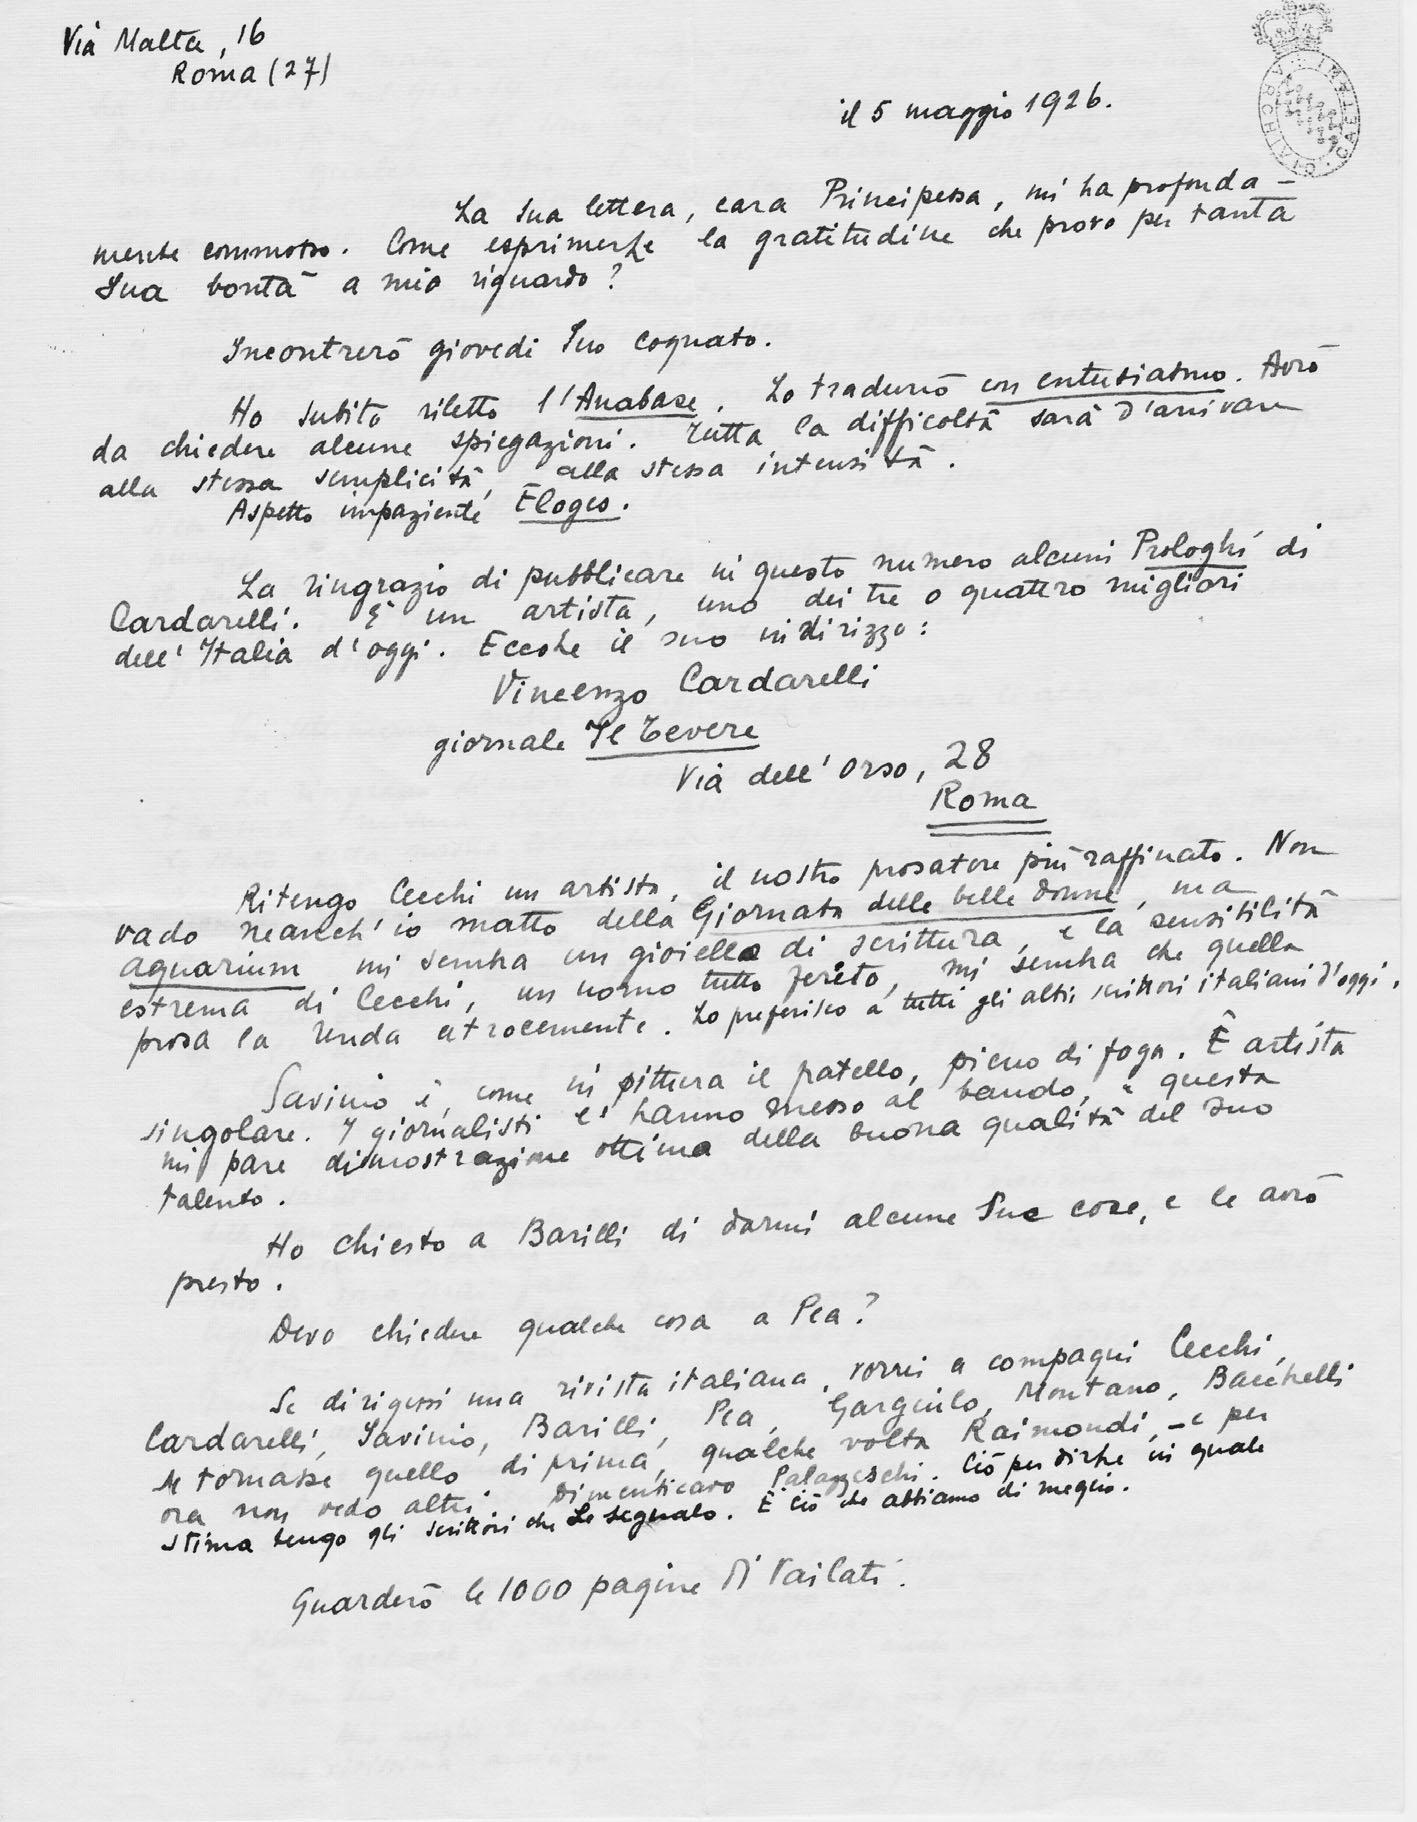 Via Malta, 16
Roma (27)
ARCHIVI CAETANI
il 5 maggio 1926.
La Sua lettera, cara Principessa, mi ha profonda-
mente commosso. Come esprimerLe la gratitudine che provo per tanta
Sua bontà a mio riguardo?
Incontrerò giovedì Suo cognato.
Ho subito riletto l'Anabase. Lo tradurrò con entusiasmo. Avrò
da chiedere alcune spiegazioni. Tutta la difficoltà sarà d'arrivare
alla stessa semplicità, alla stessa intensità.
Aspetto impaziente Éloges.
La ringrazio di pubblicare in questo numero alcuni Prologhi di
Cardarelli. È un artista, uno dei tre o quattro migliori
dell'Italia d'oggi. EccoLe il suo indirizzo:
Vincenzo Cardarelli
giornale Il Tevere
Via dell'Orso, 28
Roma
Ritengo Cecchi un artista, il nostro prosatore più raffinato. Non
vado neanch'io matto della Giornata delle belle donne, ma
aquarium mi sembra un gioiello di scrittura, e la sensibilità
estrema di Cecchi, un uomo tutto ferito, mi sembra che quella
prosa la renda atrocemente. Lo preferisco a tutti gli altri scrittori italiani d'oggi.
Savinio è, come in pittura il fratello, pieno di foga. È artista
singolare. I giornalisti l'hanno messo al bando, e questa
mi pare dimostrazione ottima della buona qualità del suo
talento.
Ho chiesto a Barilli di darmi alcune Sue cose, e le avrò
presto.
Devo chiedere qualche cosa a Pea?
Se dirigessi una rivista italiana, vorrei a compagni Cecchi,
Cardarelli, Savinio, Barilli, Pea, Gargiulo, Montano, Bacchelli
se tornasse quello di prima, qualche volta Raimondi, – e per
ora non vedo altri. Dimenticavo Palazzeschi. Ciò per dirLe in quale
stima tengo gli scrittori che Le segnalo. È ciò che abbiamo di meglio.
Guarderò le 1000 pagine di Vailati.